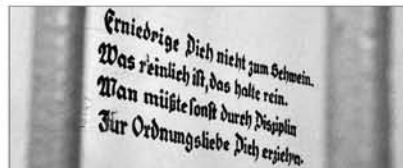 Erniedrige Dich nicht zum Schwein.
Was reinlich ist, das halte rein.
Man müßte sonst durch Disziplin
Zur Ordnungsliebe Dich erziehn.